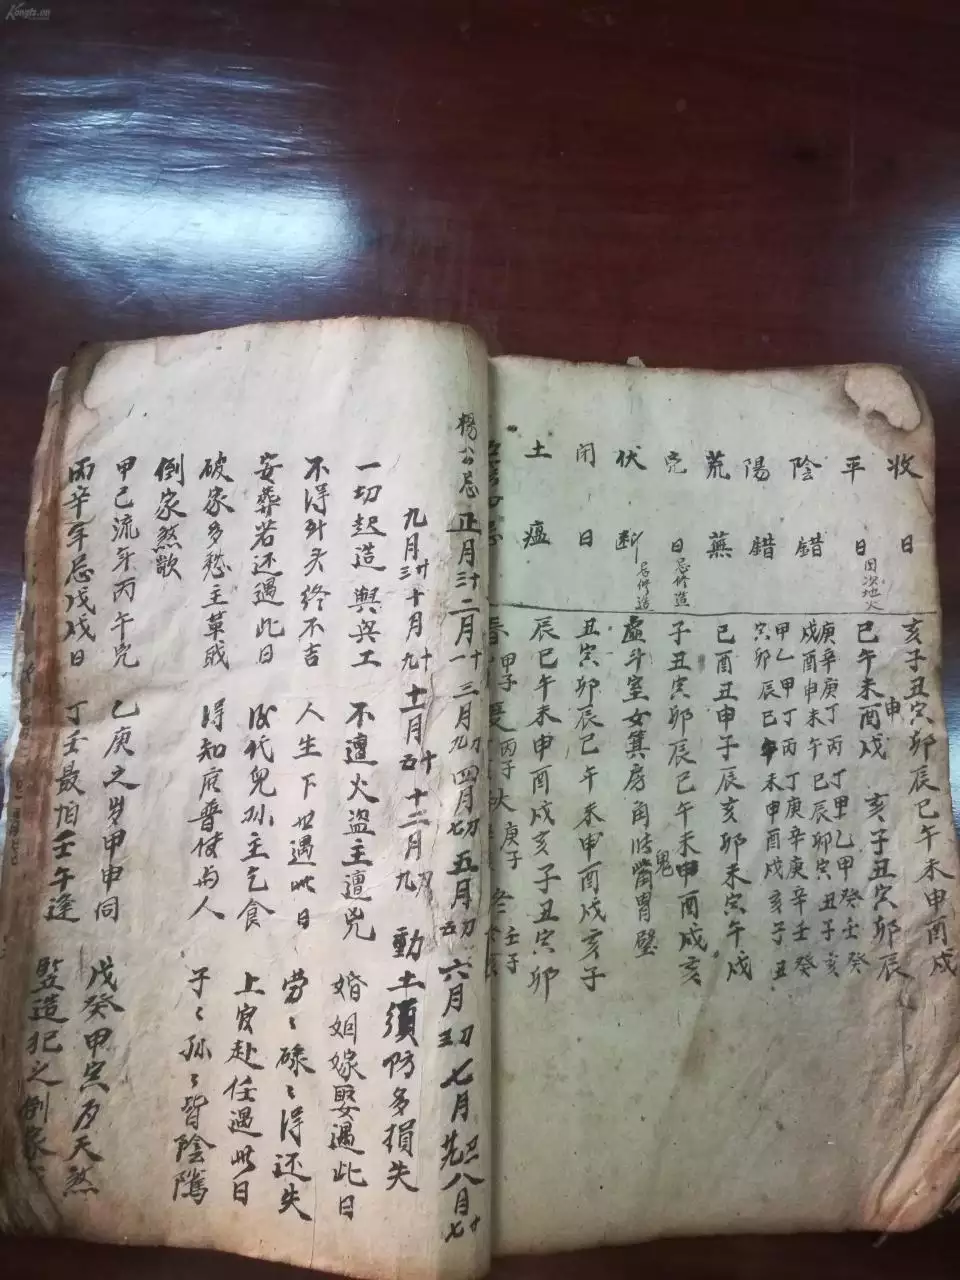 Kongfz.cn
收日 亥子丑寅卯辰巳午未申酉戌
平日 因次地火 巳午未申酉戌 亥子丑寅卯辰
陰錯 庚辛庚丁丙丁甲乙甲癸壬癸
戌酉申未午巳辰卯寅丑子亥
陽錯 甲乙甲丁丙丁庚辛庚辛壬癸
寅卯辰巳午未申酉戌亥子丑
荒蕪 巳酉丑申子辰亥卯未寅午戌
日忌修造 子丑寅卯辰巳午未鬼申酉戌亥
伏斷 忌修造 虛斗室女箕房角 觜胃壁
閉日 丑寅卯辰巳午未申酉戌亥子
土瘟 辰巳午未申酉戌亥子丑寅卯
春 甲子 夏 丙子 秋 庚子 冬 壬子
楊公忌 正月十三 二月十一 三月初九 四月初七 五月初五 六月初三 七月 廿九 八月廿七
九月廿 十月 十九 十一月 十 五 十二月 九 動土須防多損失
一切起造與與工 不遭火盜主遭兇 婚姻嫁娶遇此日
不得到头終不吉 人生下世遇此日 劳々碌々得还失
安葬若还遇此日 後代兒孫主乞食 上官赴任遇此日
破家多愁主草賊 得知 普 与人 子々孫々皆陰隲
倒家煞歌
甲己流年丙午 乙庚之岁甲申同 戊癸甲寅 天煞
丙辛年忌戊戌日 丁壬最怕壬午逢 竪造犯之倒家